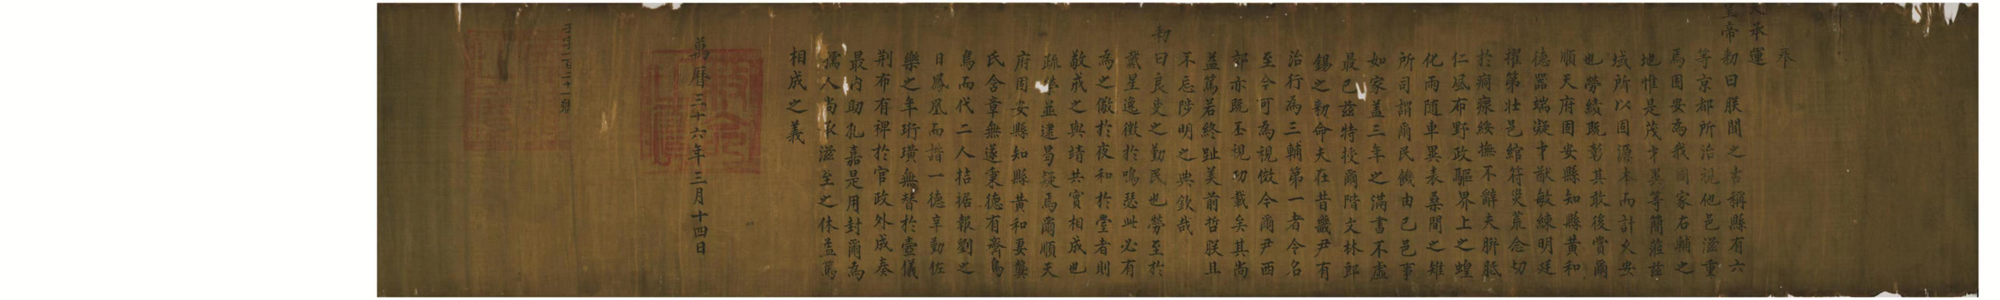 奉
天承運
皇帝勑曰朕聞之古稱縣有六
等京都所治視他邑滋重
焉固安為我國家右輔之
地惟是茂才異等簡蒞茲
域所以固源本而計久安
也勞績既彰其敢後賞爾
順天府固安縣知縣黃和
德器端凝才猷敏練明廷
擢第壯邑綰符災荒念切
於痌瘝綏撫不辭夫胼胝
仁風布野政驅界上之蝗
化雨隨車異表桑間之雉
所司謂爾民饑由己邑事
如家蓋三年之滿書不虛
最已茲特授爾階文林郎
錫之勑命夫在昔畿尹有
治行為三輔第一者令名
至今可為視倣今爾尹西
部亦既丕視功載矣其尚
益篤若終趾美前哲朕且
不忘陟明之典欽哉
勑曰良吏之勤民也勞至於
戴星邑徵於鳴瑟此必有
為之儆於夜和於堂者則
敬戒之與靖共實相成也
疏榮並逮曷疑焉爾順天
府固安縣知縣黃和妻龔
氏含章無遂秉德有齊鳥
鳥而代二人拮据報劉之
日鳳凰而諧一德辛勤佐
樂之年珩璜無替於壼儀
荊布有裨於官政外成奏
最內助孔嘉是用封爾為
孺人尚衣滋至之休益篤
相成之義
萬曆三十六年三月十四日